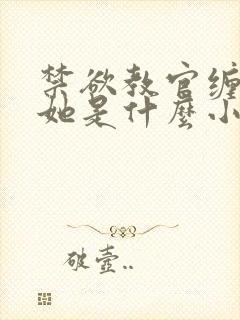 禁欲教官缠
她是什麼小
破壺..